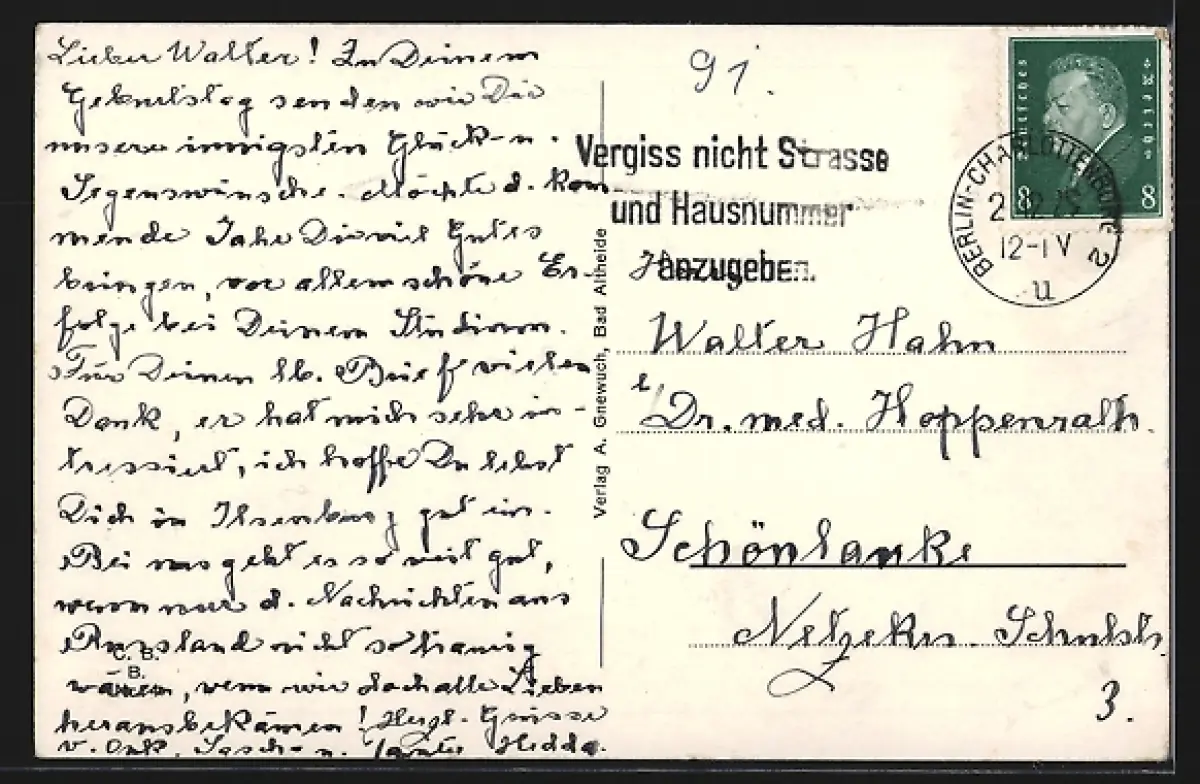 Lieber Walter! Zu Deinem
Geburtstag senden wir Dir
unsere innigsten Glück- u.
Segenswünsche. Möchte d. kom-
mende Jahr Dir viel Gutes
bringen, vor allem schöne Er-
folge bei Deinem Studium.
Für Deinen lb. Brief vielen
Dank, er hat mich sehr in-
tressiert, ich hoffe Du lebst
Dich in Ilsenburg gut ein.
Bei uns geht es so weit gut,
wenn nur d. Nachrichten aus
Russland nicht so traurig
wären, wenn wir doch alle Lieben
herausbekämen! Herzl. Grüsse
v. Onk. Sasch- u. Tante Hedda.
91.
Vergiss nicht Strasse
und Hausnummer
anzugeben.
Deutsches Reich
8 8
BERLIN-CHARLOTTENBURG 2
12-1 V
u
Verlag A. Gnewuch, Bad Altheide
Herrn
Walter Hahn
Dr. med. Hoppenrath.
Schönlanke
Netzekr.
3.